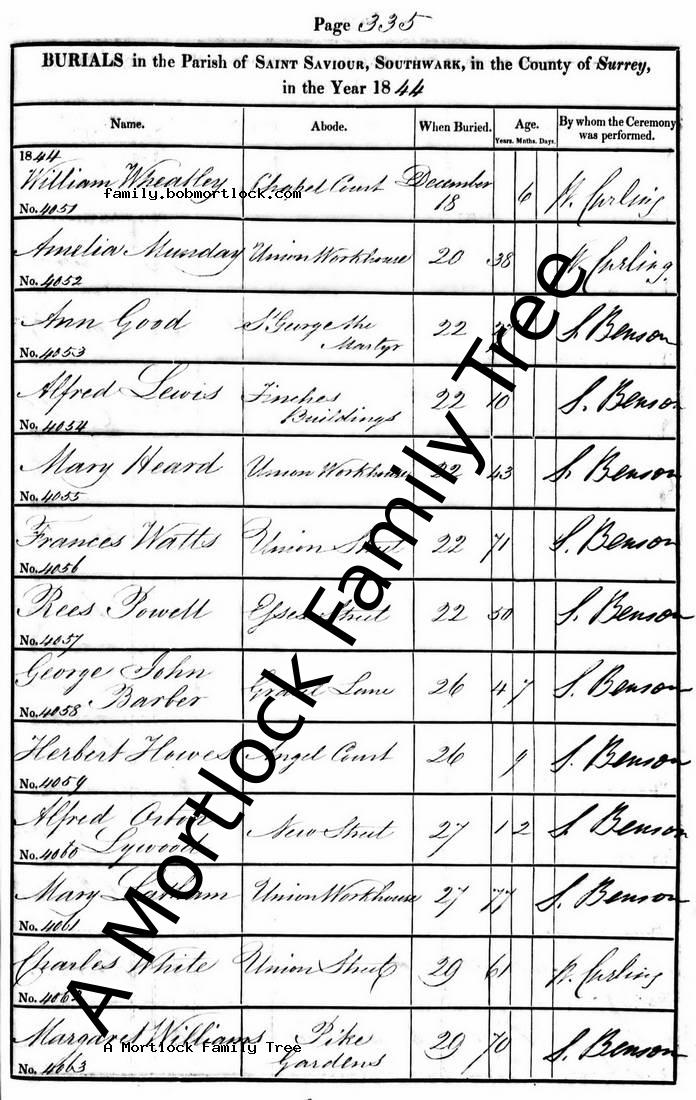 Page 335
BURIALS in the Parish of SAINT SAVIOUR, SOUTHWARK, in the County of Surrey,
in the Year 1844
Name. Abode. When Buried. Age. By whom the Ceremony was performed.
Years. Mnths. Days.
1844
William Wheatley Chapel Court December 18 6 W. Curling
family.bobmortlock.com
No. 4051
Amelia Munday Union Workhouse 20 38 W. Curling
No. 4052
Ann Good St George the Martyr 22 S. Benson
No. 4053
Alfred Lewis Finches Buildings 22 10 S. Benson
No. 4054
Mary Heard Union Workhouse 22 43 S. Benson
No. 4055
Frances Watts Union Street 22 71 S. Benson
No. 4056
Rees Powell Essex Street 22 50 S. Benson
No. 4057
George John Barber Lane 26 4 7 S. Benson
No. 4058
Herbert Howes Angel Court 26 9 S. Benson
No. 4059
Alfred Lywood New Street 27 1 2 S. Benson
No. 4060
Mary Union Workhouse 27 77 S. Benson
No. 4061
Charles White Union Street 29 61 W. Curling
No. 4062
Margaret Williams Pike Gardens 29 70 S. Benson
A Mortlock Family Tree
No. 4063
A Mortlock Family Tree